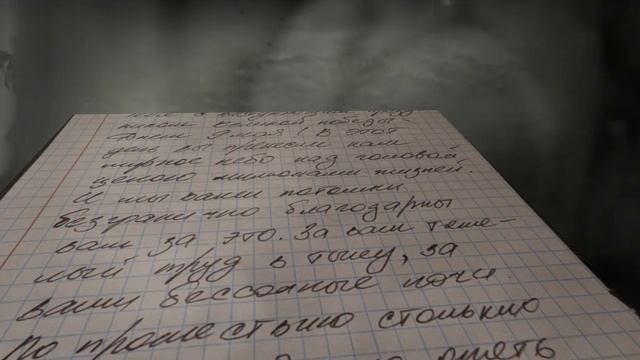 великой победы-
Днем 9 мая! В этот
день вы принесли нам
мирное небо над головой,
ценою миллионами жизней.
И мы ваши потомки
безгранично благодарны
вам за это. За ваш тяже-
лый труд в тылу, за
ваши бессонные ночи.
По прошествию столько